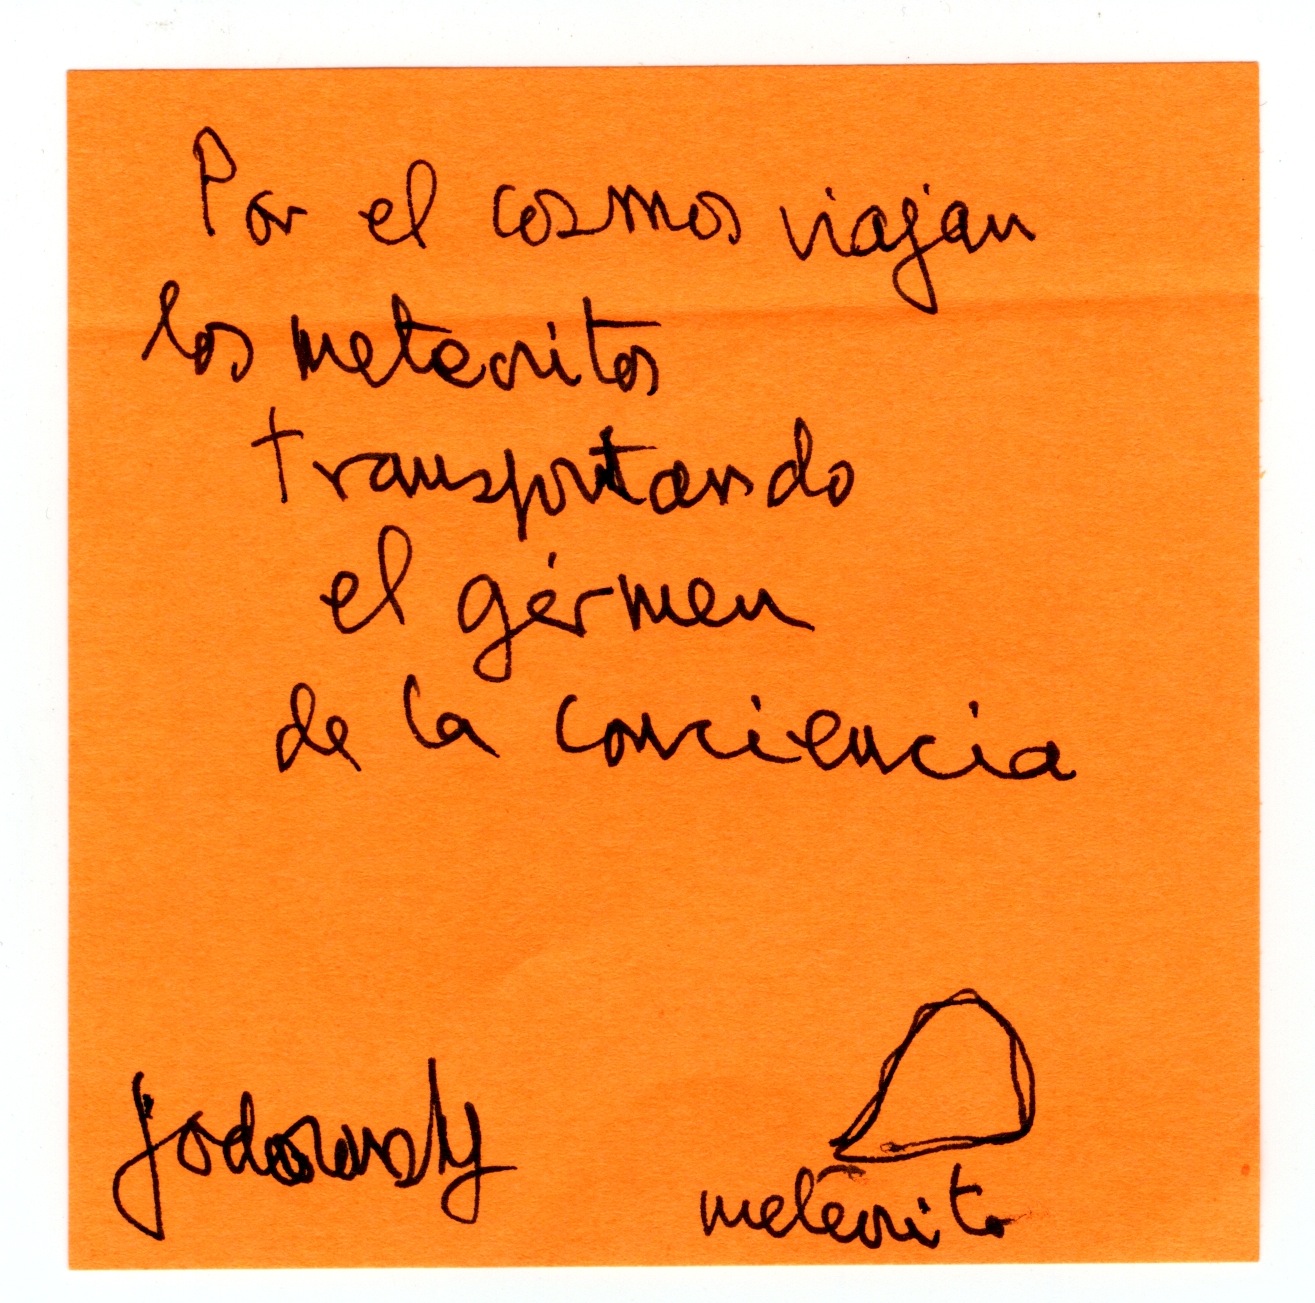 Por el cosmos viajan
los meteoritos
transportando
el gérmen
de la conciencia
Jodorowsky
meteorito